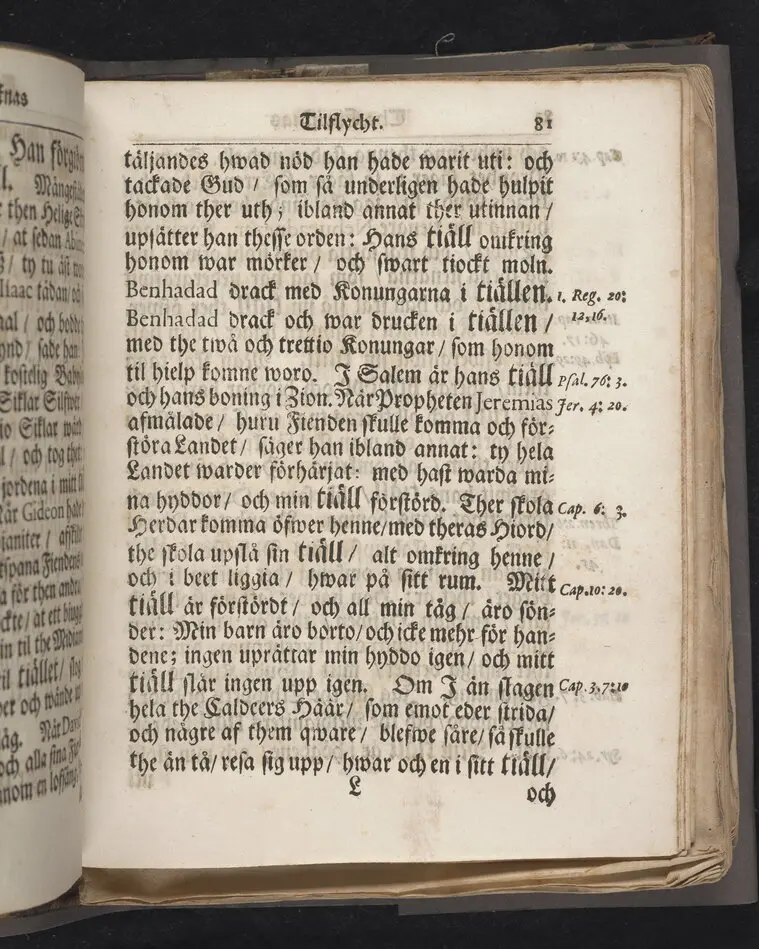 knas
Han förgi
Mångest
then Helige
/ at sedan
/ ty tu äst
Isaac tådan
/ och
sade han
kostelig
Siklar Silfwer
Siklar
/ och tog thet
jordena i mitt
Når Gideon
/
Fiendens
för then andra
/ at ett
in til the
til tiället/
och wände
tåg. När
och alla sina
nom en lofsång
Tilflycht. 81
täljandes hwad nöd han hade warit uti: och
tackade Gud / som så underligen hade hulpit
honom ther uth; ibland annat ther utinnan /
upsätter han thesse orden: Hans tiäll omkring
honom war mörker / och swart tiockt moln.
Benhadad drack med Konungarna i tiällen. 1. Reg. 20:
Benhadad drack och war drucken i tiällen / 12,16.
med the twå och trettio Konungar / som honom
til hielp komne woro. J Salem är hans tiäll Psal. 76: 3.
och hans boning i Zion. När Propheten Jeremias Jer. 4: 20.
afmålade / huru Fienden skulle komma och för-
störa Landet / säger han ibland annat: ty hela
Landet warder förhärjat: med hast warda mi-
na hyddor / och min tiäll förstörd. Ther skola Cap. 6: 3.
Herdar komma öfwer henne/ med theras Hiord/
the skola upslå sin tiäll / alt omkring henne /
och i beet liggia / hwar på sitt rum. Mitt Cap. 10: 20.
tiäll är förstördt / och all min tåg / äro sön-
der: Min barn äro borto/ och icke mehr för han-
dene; ingen uprättar min hyddo igen/ och mitt
tiäll slår ingen upp igen. Om J än slagen Cap. 3.7:10
hela the Caldeers Häär/ som emot eder strida/
och någre af them qware / blefwe såre/ så skulle
the än tå/ resa sig upp/ hwar och en i sitt tiäll/
L och